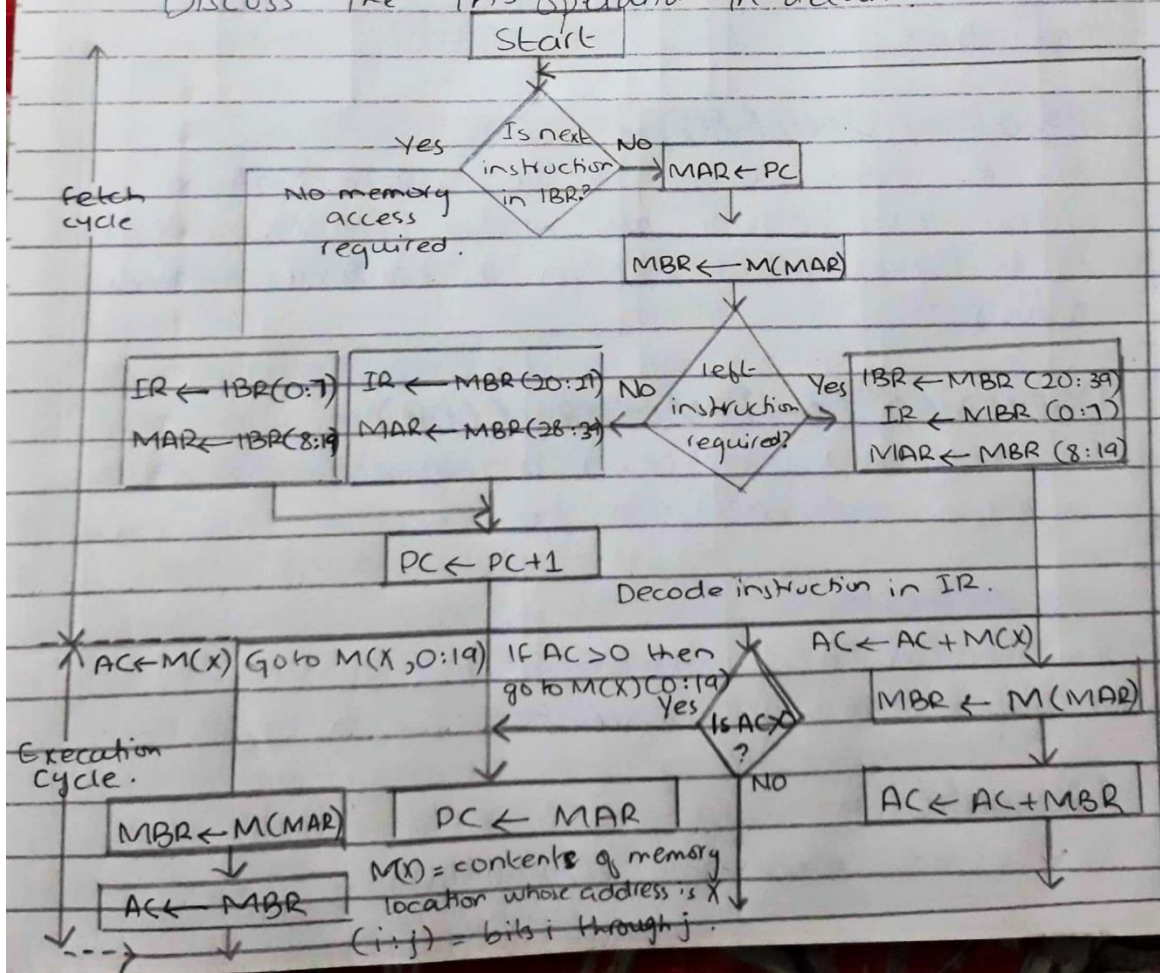 Discuss the IAS operand in detail.
Start
Is next
instruction
in IBR?
Yes
No
MAR ← PC
No memory
access
required.
fetch
cycle
MBR ← M(MAR)
left
instruction
required?
No
Yes
IR ← IBR(0:7)
MAR ← IBR(8:19)
IR ← MBR(20:27)
MAR ← MBR(28:39)
IBR ← MBR (20:39)
IR ← MBR (0:7)
MAR ← MBR (8:19)
PC ← PC+1
Decode instruction in IR.
AC ← M(X)
Go to M(X,0:19)
If AC >0 then
go to M(X)(0:19)
Yes
Is AC>0
?
NO
AC ← AC + M(X)
MBR ← M(MAR)
AC ← AC+MBR
Execation
Cycle.
MBR ← M(MAR)
AC ← MBR
PC ← MAR
M(X) = contents of memory
location whose address is X
(i:j) = bits i through j.